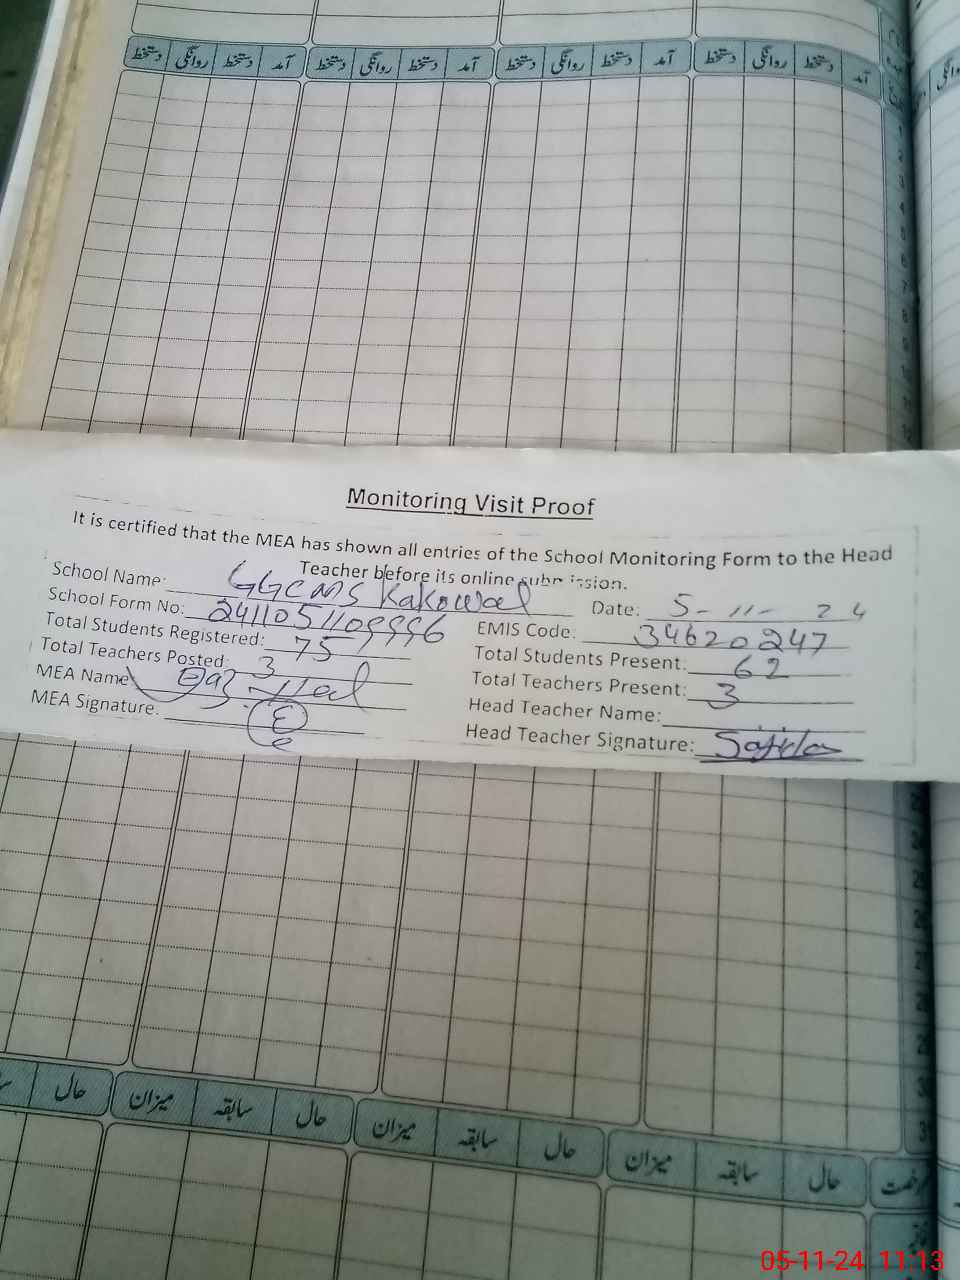 آمد دستخط روانگی دستخط آمد دستخط روانگی دستخط آمد دستخط روانگی دستخط آمد دستخط روانگی دستخط
1
2
3
4
5
6
7
8
Monitoring Visit Proof
It is certified that the MEA has shown all entries of the School Monitoring Form to the Head
Teacher before its online submission.
School Name: GGCMS Kakowal Date: 5-11-24
School Form No: 2411051109996 EMIS Code: 34620247
Total Students Registered: 75 Total Students Present: 62
Total Teachers Posted: 3 Total Teachers Present: 3
MEA Name Head Teacher Name:
MEA Signature: Head Teacher Signature: Sajida
رخصت حال سابقہ میزان حال سابقہ میزان حال سابقہ میزان حال
05-11-24 11:13